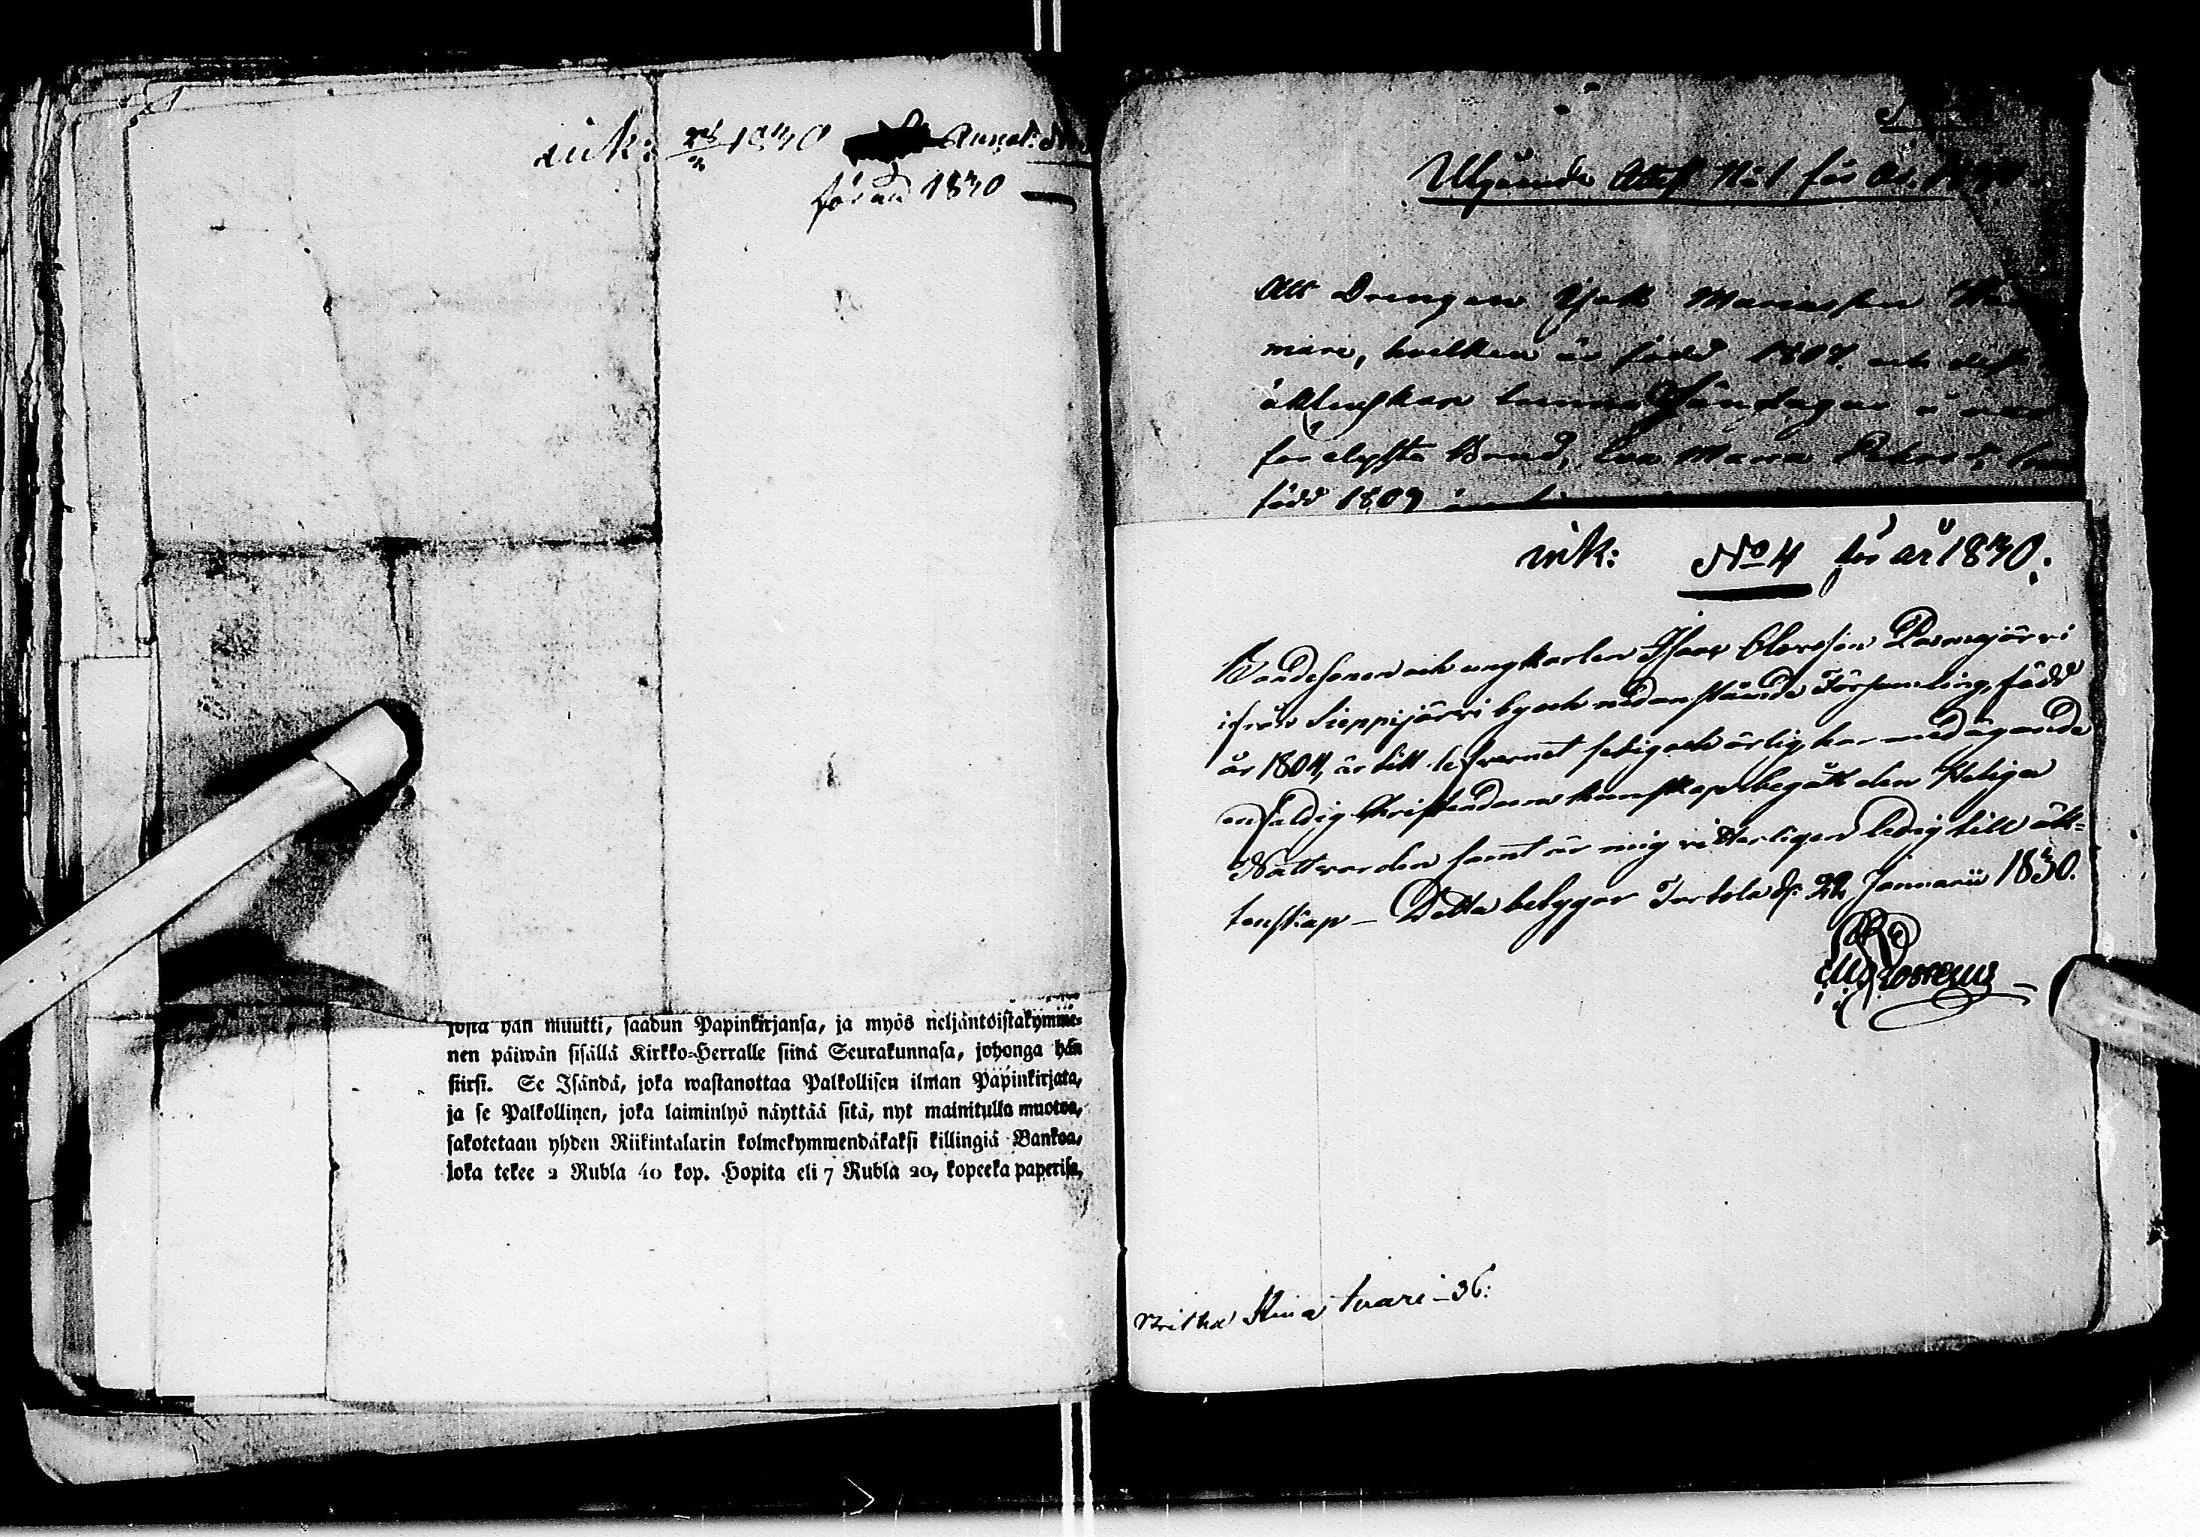 ink: 28/2 1830 Annot: N
för år 1830
josta hän muutti, saadun Papinkirjansa, ja myös neljäntoistakymme-
nen päiwän sisällä Kirkko-Herralle siinä Seurakunnasa, johonga hän
siirsi. Se Isändä, joka wastanottaa Palkollisen ilman Papinkirjata,
ja se Palkollinen, joka laiminlyö näyttää sitä, nyt mainitulla muotoa,
sakotetaan yhden Riikintalarin kolmekymmendäkaksi killingiä Bankoa,
joka tekee 2 Rubla 40 kop. Hopita eli 7 Rubla 20, kopeeka paperisa,
Utgående Attest N:o 1 för år
Att Drengen Isak Mariasson
mari, hvilken är född 1807. och dess
äktenskap Söndagar i
förelyste Brud, Eva Maria Petersd:r
född 1809
ink: No 4 för år 1830.
Bondesonen och ungkarlen Isaac Olavsson Parmajärvi
ifrån Sieppijärvi by och nedanstående Församling, född
år 1804, är till lefvernet sedig och ärlig, har med ägande
enfaldig Christendoms kunskap begått den Heliga
Nattvarden samt är mig vitterligen ledig till äk-
tenskap – Detta betygar Turtola d. 22 Januarii 1830.
Britha Stina Kuari – 36: